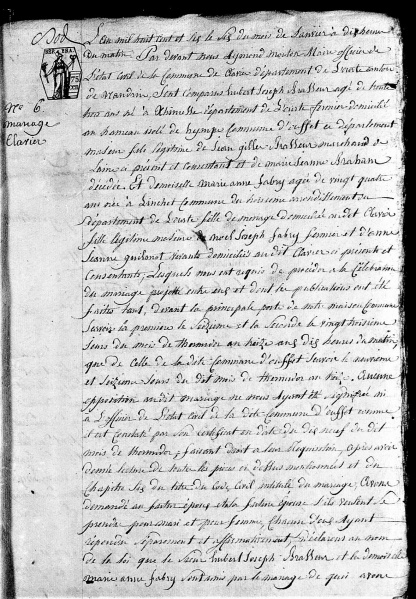 L'an mil huit cent et six le six du mois de Janvier à dix heures
du matin Par devant nous Aymond mouton Maire officier de
l'état civil de la Commune de Clavier département de l'ourte canton
de Nandrin, sont comparus hubert Joseph Brasseur agé de trente
trois ans né à Xhinesse département de l'ourte fermier domicilié
au hameau isolé de hemps Commune d'ouffet ce département
majeur fils légitime de Jean gille Brasseur marchand de
Laine ci présent et Consentant et de marie Jeanne Braham
décédée Et demoiselle marie anne fabry agée de vingt quatre
ans née à Linchet Commune du troisieme arrondissement du
département de l'ourte fille de menage domiciliée au dit Clavier
fille légitime de noel Joseph fabry fermier et d'anne
Jeanne domiciliés au dit Clavier ci présents et
Consentants, Lesquels nous ont requis de procéder à la Célébration
du mariage projetté entre eux et dont les publications ont été
faites tant devant la principale porte de notre maison Commune
sçavoir la premiere le seizieme et la seconde le vingt troisieme
Jours du mois de thermidor an treize à dix heures du matin,
que de Celle de la dite Commune d'ouffet sçavoir le neuvieme
et seizieme Jours du dit mois de thermidor an treize, Aucune
opposition au dit mariage ne nous ayant été signifiée ni
à l'officier de l'état civil de la dite Commune d'ouffet comme
il est Constaté par son certificat en date du dix neuf du dit
mois de thermidor, faisant droit à leur Requisition, après avoir
donné lecture de toutes les pieces ci dessus mentionnées et du
Chapitre six du titre du Code Civil intitulé du mariage, Avons
demandé au futur époux et à la future épouse s'ils veulent se
prendre pour mari et pour femme, Chacun d'eux ayant
répondu séparement et affirmativement, Déclarons au nom
de la loi que le sieur hubert Joseph Brasseur et la demoiselle
marie anne fabry sont unis par le mariage de quoi avons
No 6
mariage
Clavier